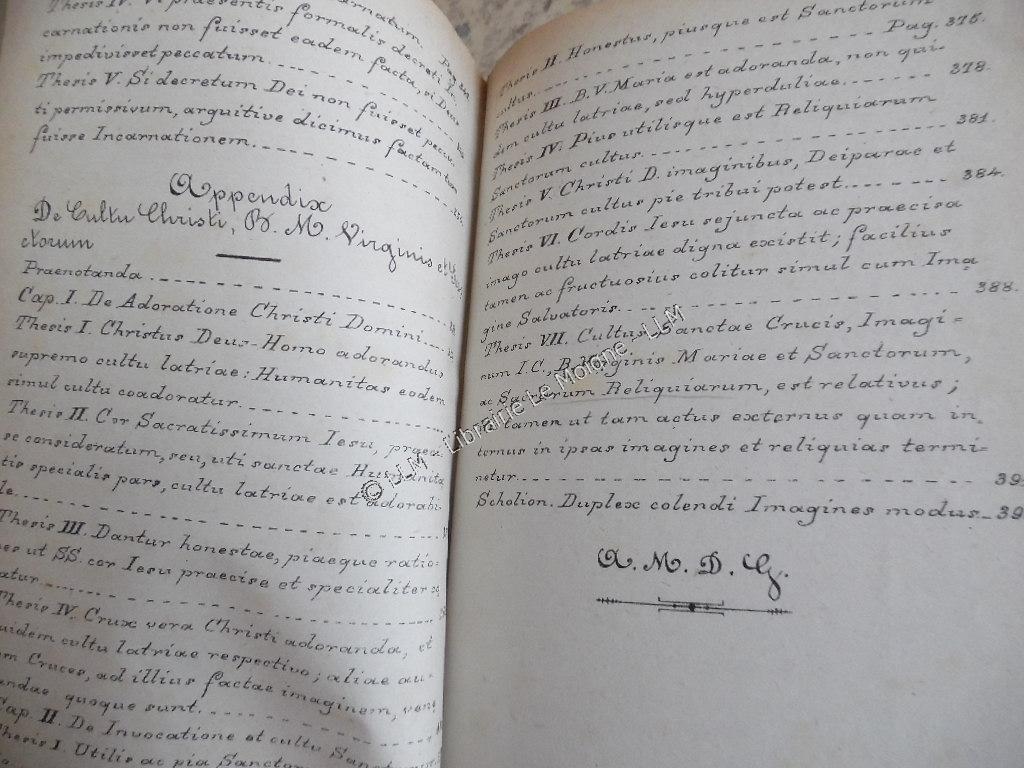 Thesis IV. Vi praesentis formalis decreti I.
carnationis non fuisset eadem facta, si Deus
impedivisset peccatum
Thesis V. Si decretum Dei non fuisset pecca-
ti permissivum, arguitive dicimus factam non
fuisse Incarnationem.
Appendix
De Cultu Christi, B. M. Virginis et
ctorum
Praenotanda
Cap. I. De Adoratione Christi Domini
Thesis I. Christus Deus-Homo adorandus,
supremo cultu latriae: Humanitas eodem
simul cultu coadoratur
Thesis II. Cor Sacratissimum Iesu, praeci-
se consideratum, seu, uti sanctae Humanita
tis specialis pars, cultu latriae est adorabi-
le
Thesis III. Dantur honestae, piaeque ratio-
nes ut SS. cor Iesu praecise et specialiter
atur
Thesis IV. Crux vera Christi adoranda, et
quidem cultu latriae respectivo; aliae au-
em Cruces, ad illius factae imaginem, vene
andae quoque sunt.
Cap. II. De Invocatione et cultu Sanct
Thesis I. Utilis ac pia Sanctor
Thesis II. Honestus, piusque est Sanctorum
cultus. Pag. 375.
Thesis III. B. V. Maria est adoranda, non qui-
dem cultu latriae, sed hyperduliae. 378.
Thesis IV. Pius utilisque est Reliquiarum
Sanctorum cultus. 381.
Thesis V. Christi D. imaginibus, Deiparae et
Sanctorum cultus pie tribui potest. 384.
Thesis VI. Cordis Iesu sejuncta ac praecisa
imago cultu latriae digna existit; facilius
tamen ac fructuosius colitur simul cum Ima
gine Salvatoris. 388.
Thesis VII. Cultus Sanctae Crucis, Imagi=
num I.C., B. Virginis Mariae et Sanctorum,
ac Sacrarum Reliquiarum, est relativus;
tamen ut tam actus externus quam in
ternus in ipsas imagines et reliquias termi-
netur. 39
Scholion. Duplex colendi Imagines modus 39
A. M. D. G.
© LLM Librairie Le Moigne LLM